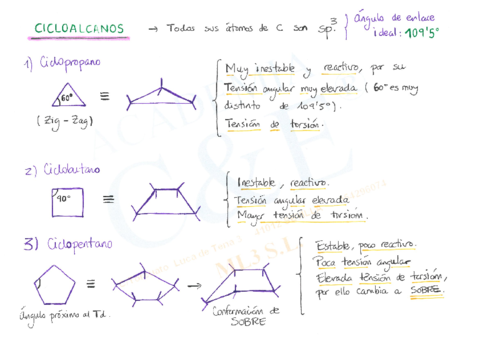 CICLOALCANOS → Todos sus átomos de C son sp³ { Ángulo de enlace
ideal: 109'5°
1) Ciclopropano
60°
≡
(Zig-Zag)
Muy inestable y reactivo, por su
Tensión angular muy elevada (60° es muy
distinto de 109'5°).
Tensión de torsión.
2) Ciclobutano
90°
≡
Inestable, reactivo.
Tensión angular elevada.
Mayor tensión de torsión.
3) Ciclopentano
≡
→
Ángulo próximo al Td.
Conformación de
SOBRE
Estable, poco reactivo.
Poca tensión angular
Elevada tensión de torsión,
por ello cambia a SOBRE.
ACADEMIA
C&E